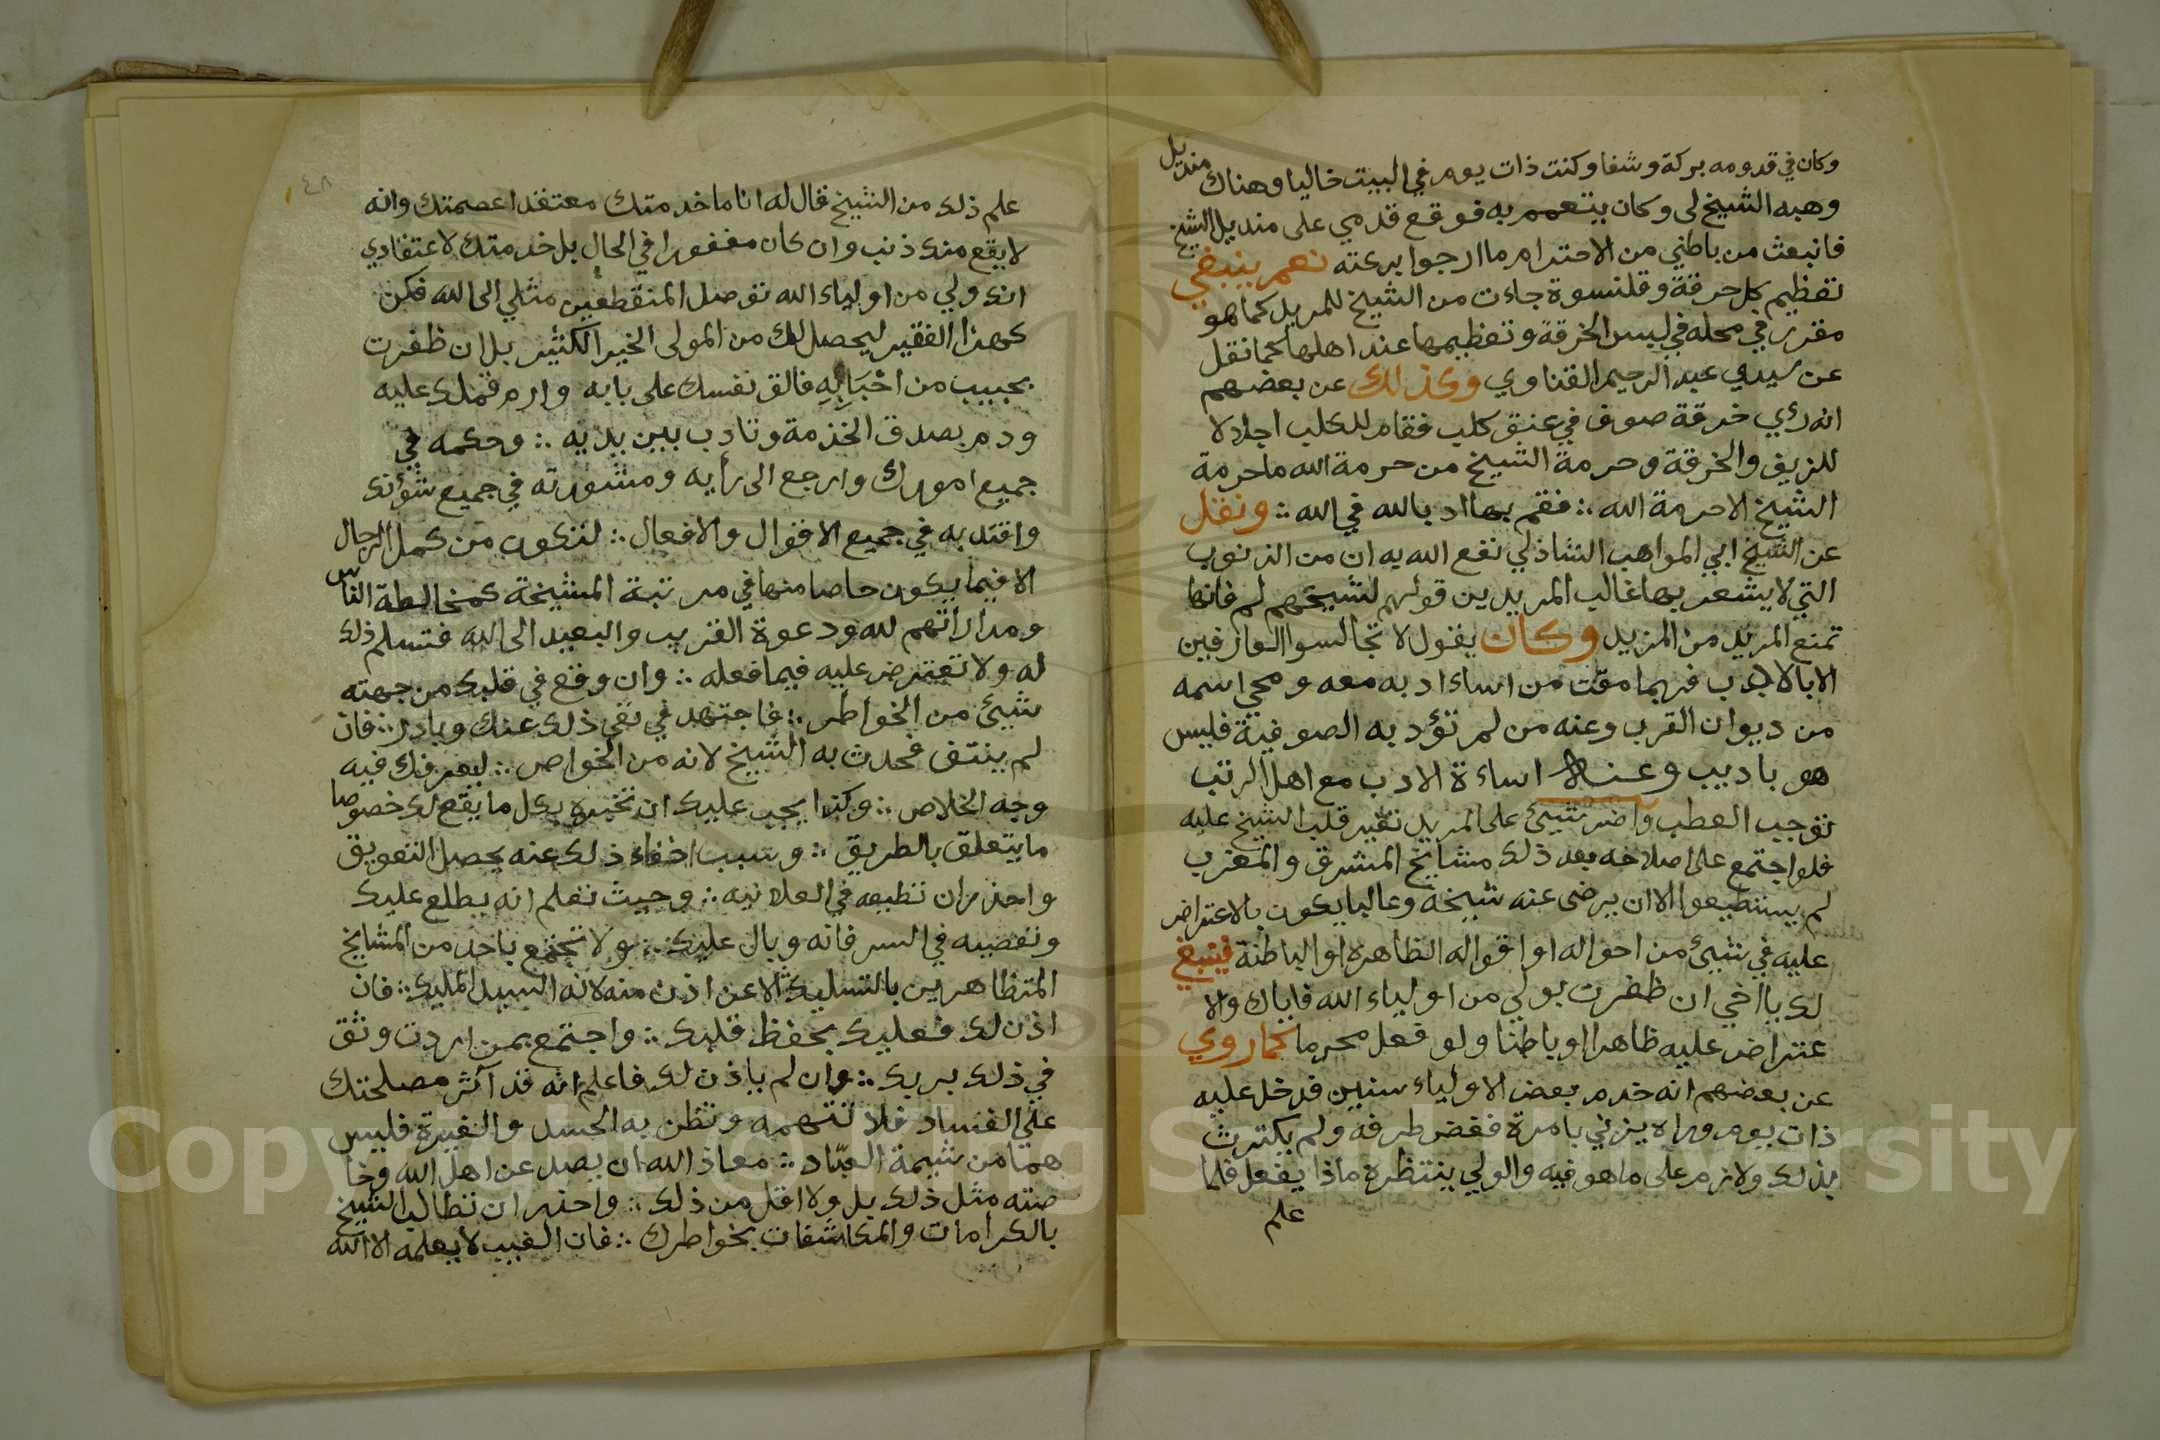 وكان في قدومه بركة وشفا وكنت ذات يوم في البيت خاليا وهناك منديل
وهبه الشيخ لي وكان يتعمم به فوقع قدمي على منديل الشيخ
فانبعث من باطني من الاحترام ما ارجوا بركته نعم ينبغي
تعظيم كل خرقة وقلنسوة جاءت من الشيخ للمريد كما هو
مقرر في محله في لبس الخرقة وتعظيمها عند اهلها كما نقل
عن سيدي عبد الرحيم القناوي وكذلك عن بعضهم
انه رءي خرقة صوف في عنق كلب فقام للكلب اجلالا
للزيق والخرقة وحرمة الشيخ من حرمة الله ما حرمة
الشيخ الا حرمة الله ∴ فقم بها ادبا لله في الله ∴ ونقل
عن الشيخ ابي المواهب الشاذلي نفع الله به ان من الذنوب
التي لا يشعر بها غالب المريدين قولهم لشيخهم لم فانها
تمنع المريد من المزيد وكان يقول لا تجالسوا العارفين
الا بالادب فربما مقت من اساء ادبه معه ومحي اسمه
من ديوان القرب وعنه من لم تؤدبه الصوفية فليس
هو باديب وعنه اساءة الادب مع اهل الرتب
توجب العطب واضر شيئ على المريد تغير قلب الشيخ عليه
فلو اجتمع على اصلاحه بعد ذلك مشايخ المشرق والمغرب
لم يستطيعوا الا ان يرضى عنه شيخه وغالبا يكون بالاعتراض
عليه في شيئ من احواله او اقواله الظاهرة او الباطنة فينبغي
لك يا اخي ان ظفرت بولي من اولياء الله فاياك والا
عتراض عليه ظاهرا او باطنا ولو فعل محرما كما روي
عن بعضهم انه خدم بعض الاولياء سنين فدخل عليه
ذات يوم وراه يزني بامرة فغض طرفه ولم يكترث
بذلك ولازم على ما هو فيه والولي ينتظره ماذا يفعل فلما
علم
٤٨
علم ذلك من الشيخ قال له انا ما خدمتك معتقدا عصمتك وانه
لا يقع منك ذنب وان كان مغفورا في الحال بل خدمتك لاعتقادي
انك ولي من اولياء الله توصل المنقطعين مثلي الى الله فكن
كهذا الفقير ليحصل لك من المولى الخير الكثير بل ان ظفرت
بحبيب من احبابه فالق نفسك على بابه وارم قملك عليه
ودم بصدق الخدمة وتادب بين يديه ∴ وحكمه في
جميع امورك وارجع الى رأيه ومشورته في جميع شؤنك
واقتد به في جميع الاقوال والافعال ∴ لتكون من كمل الرجال
الا فيما يكون خاصا منها في مرتبة المشيخة كمخالطة الناس
ومداراتهم لله ودعوة القريب والبعيد الى الله فتسلم ذلك
له ولا تعترض عليه فيما فعله ∴ وان وقع في قلبك من جهته
شيئ من الخواطر ∴ فاجتهد في نفي ذلك عنك وبادر ∴ فان
لم ينتف فحدث به الشيخ لانه من الخواص ∴ ليعرفك فيه
وجه الخلاص ∴ وكذا يجب عليك ان تخبره بكل ما يقع لك خصوصا
ما يتعلق بالطريق ∴ وسبب اخفاء ذلك عنه يحصل التعويق
واحذر ان تطيعه في العلانيه ∴ وحيث تعلم انه يطلع عليك
وتعصيه في السر فانه وبال عليك ∴ ولا تجتمع باحد من المشايخ
المتظاهرين بالتسليك الا عن اذن منه لانه السيد المليك ∴ فان
اذن لك فعليك بحفظ قلبك ∴ واجتمع بمن اردت وثق
في ذلك بربك ∴ وان لم ياذن لك فاعلم انه قد آثر مصلحتك
على الفساد فلا تتهمه وتظن به الحسد والغيرة فليس
هذا من شيمة العبّاد ∴ معاذ الله ان يصدر عن اهل الله وخا
صته مثل ذلك بل ولا اقل من ذلك ∴ واحذر ان تطالب الشيخ
بالكرامات والمكاشفات بخواطرك ∴ فان الغيب لا يعلمه الا الله
Copyright © King Saud University